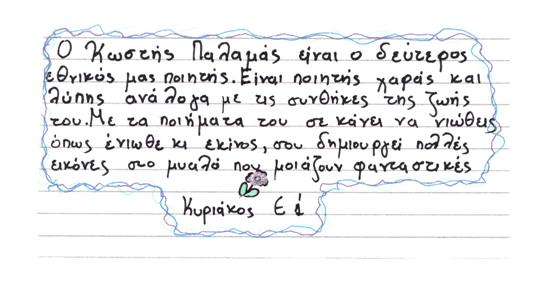 Ο Κωστής Παλαμάς είναι ο δεύτερος
εθνικός μας ποιητής. Είναι ποιητής χαράς και
λύπης ανάλογα με τις συνθήκες της ζωής
του. Με τα ποιήματα του σε κάνει να νιώθεις
όπως ένιωθε κι εκίνος, σου δημιουργεί πολλές
εικόνες στο μυαλό που μοιάζουν φανταστικές
Κυριάκος Ε ά